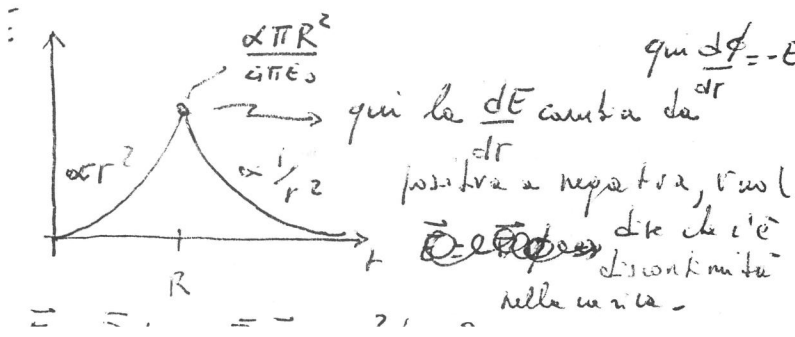 E
απR²
4πε₀
qui dφ/dr = -E
qui la dE/dr cambia da
∝r²
∝ 1/r²
positiva a negativa, vuol
dire che c'è
discontinuità
nella carica.
R
r